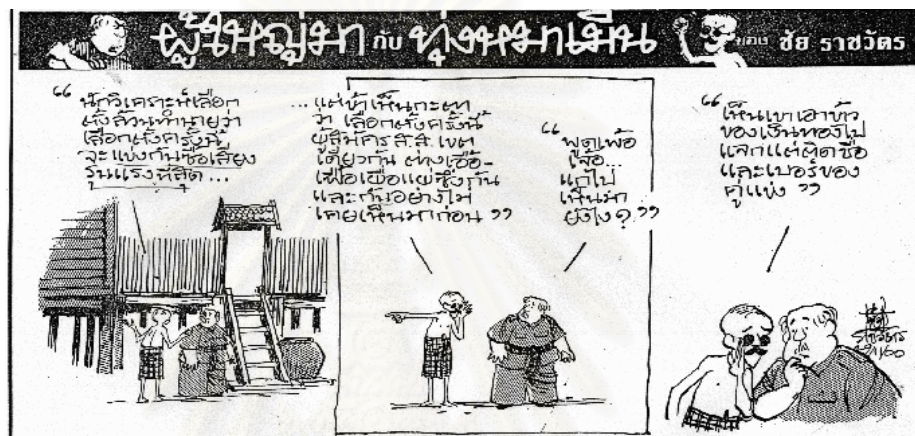 ผู้ใหญ่มา กับ ทุ่งหมาเมิน ของ ชัย ราชวัตร
“ นักวิเคราะห์เลือก
ตั้งล้วนทำนายว่า
เลือกตั้งครั้งนี้
จะแข่งกันซื้อเสียง
รุนแรงที่สุด...
...แต่ข้าเห็นกะตา
ว่า เลือกตั้งครั้งนี้
ผู้สมัคร ส.ส. เขต
เดียวกัน ต่างเอื้อ-
เฟื้อเผื่อแผ่ซึ่งกัน
และกันอย่างไม่
เคยเห็นมาก่อน ”
“ พูดเพ้อ
เจ้อ...
แกไป
เห็นมา
ยังไง ? ”
“ เห็นเขาเอาข้าว
ของเงินทองไป
แจกแต่ติดชื่อ
และเบอร์ของ
คู่แข่ง ”